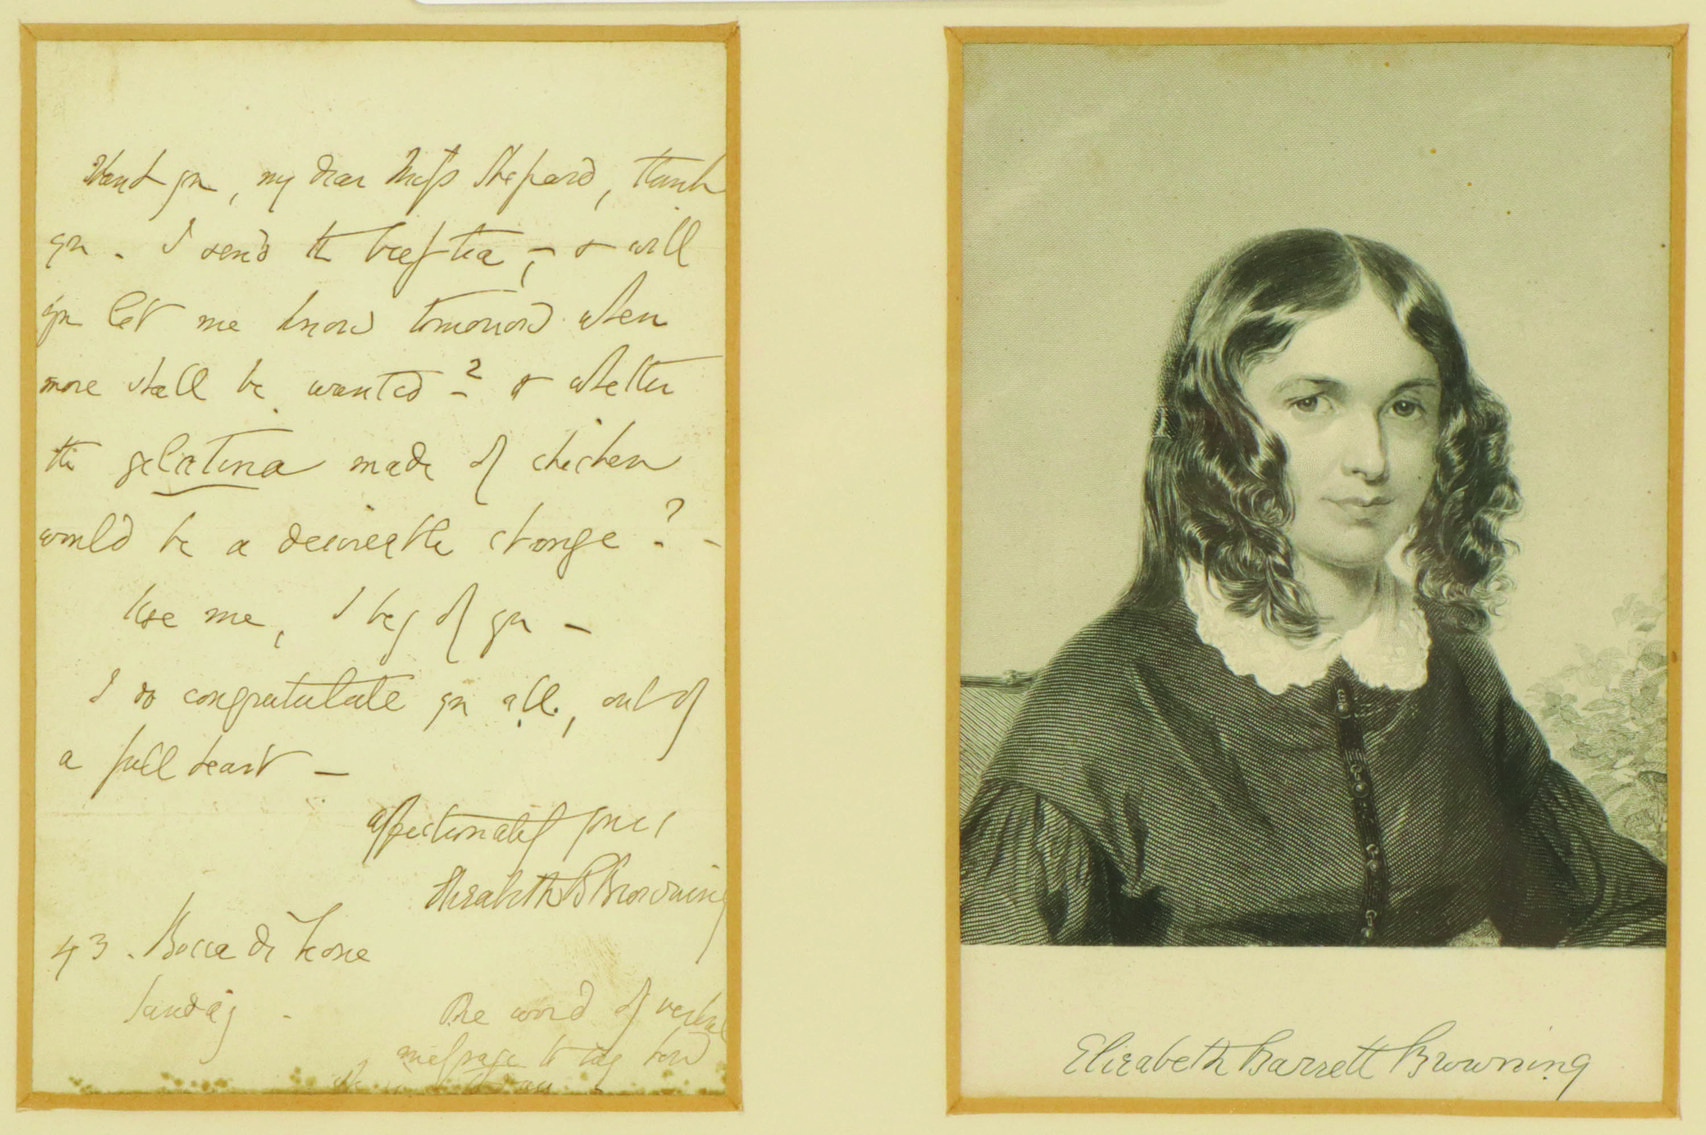 Thank you, my dear Miss Shepard, thank
you. I send the beef tea, - & will
you let me know tomorrow when
more shall be wanted -? & whether
the gelatina made of chicken
would be a desireable change? -
Use me, I beg of you -
I do congratulate you all, out of
a full heart -
affectionately yours
Elizabeth B Browning
43. Bocca di Leone
Sunday -
One word of verbal
message to say how
Elizabeth Barrett Browning